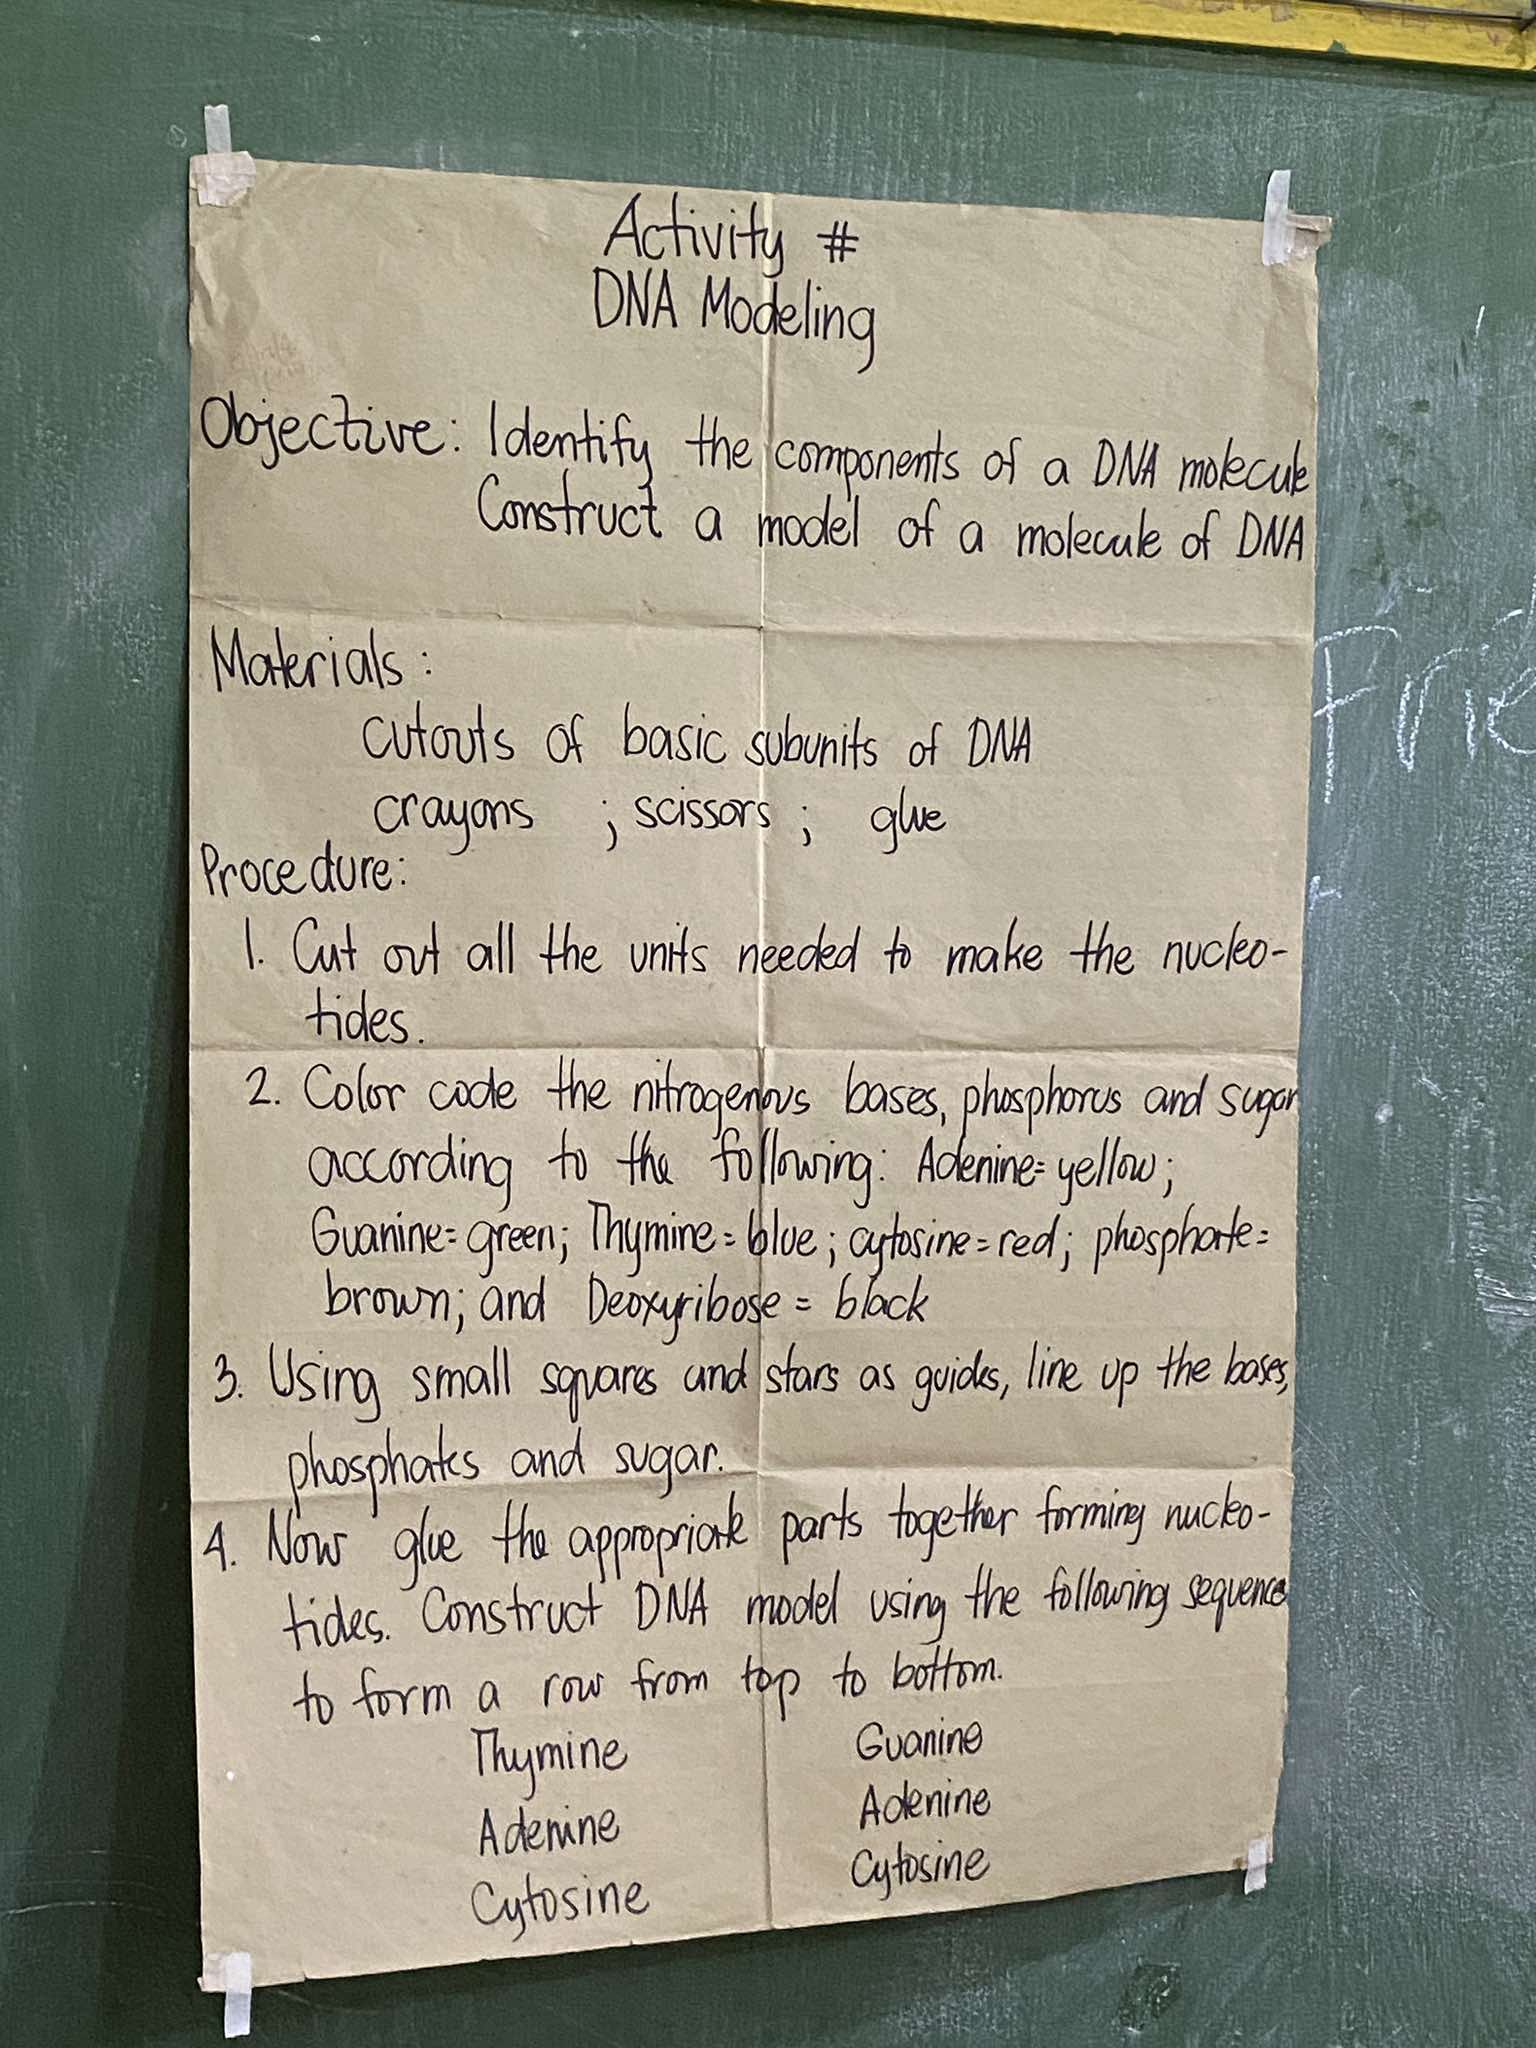 Activity #
DNA Modeling
Objective: Identify the components of a DNA molecule
Construct a model of a molecule of DNA
Materials:
cutouts of basic subunits of DNA
crayons ; scissors ; glue
Procedure:
1. Cut out all the units needed to make the nucleo-
tides.
2. Color code the nitrogenous bases, phosphorus and sugar
according to the following: Adenine= yellow;
Guanine= green; Thymine= blue; cytosine= red; phosphate=
brown; and Deoxyribose = black
3. Using small squares and stars as guides, line up the bases,
phosphates and sugar.
4. Now glue the appropriate parts together forming nucleo-
tides. Construct DNA model using the following sequence
to form a row from top to bottom.
Thymine Guanine
Adenine Adenine
Cytosine Cytosine